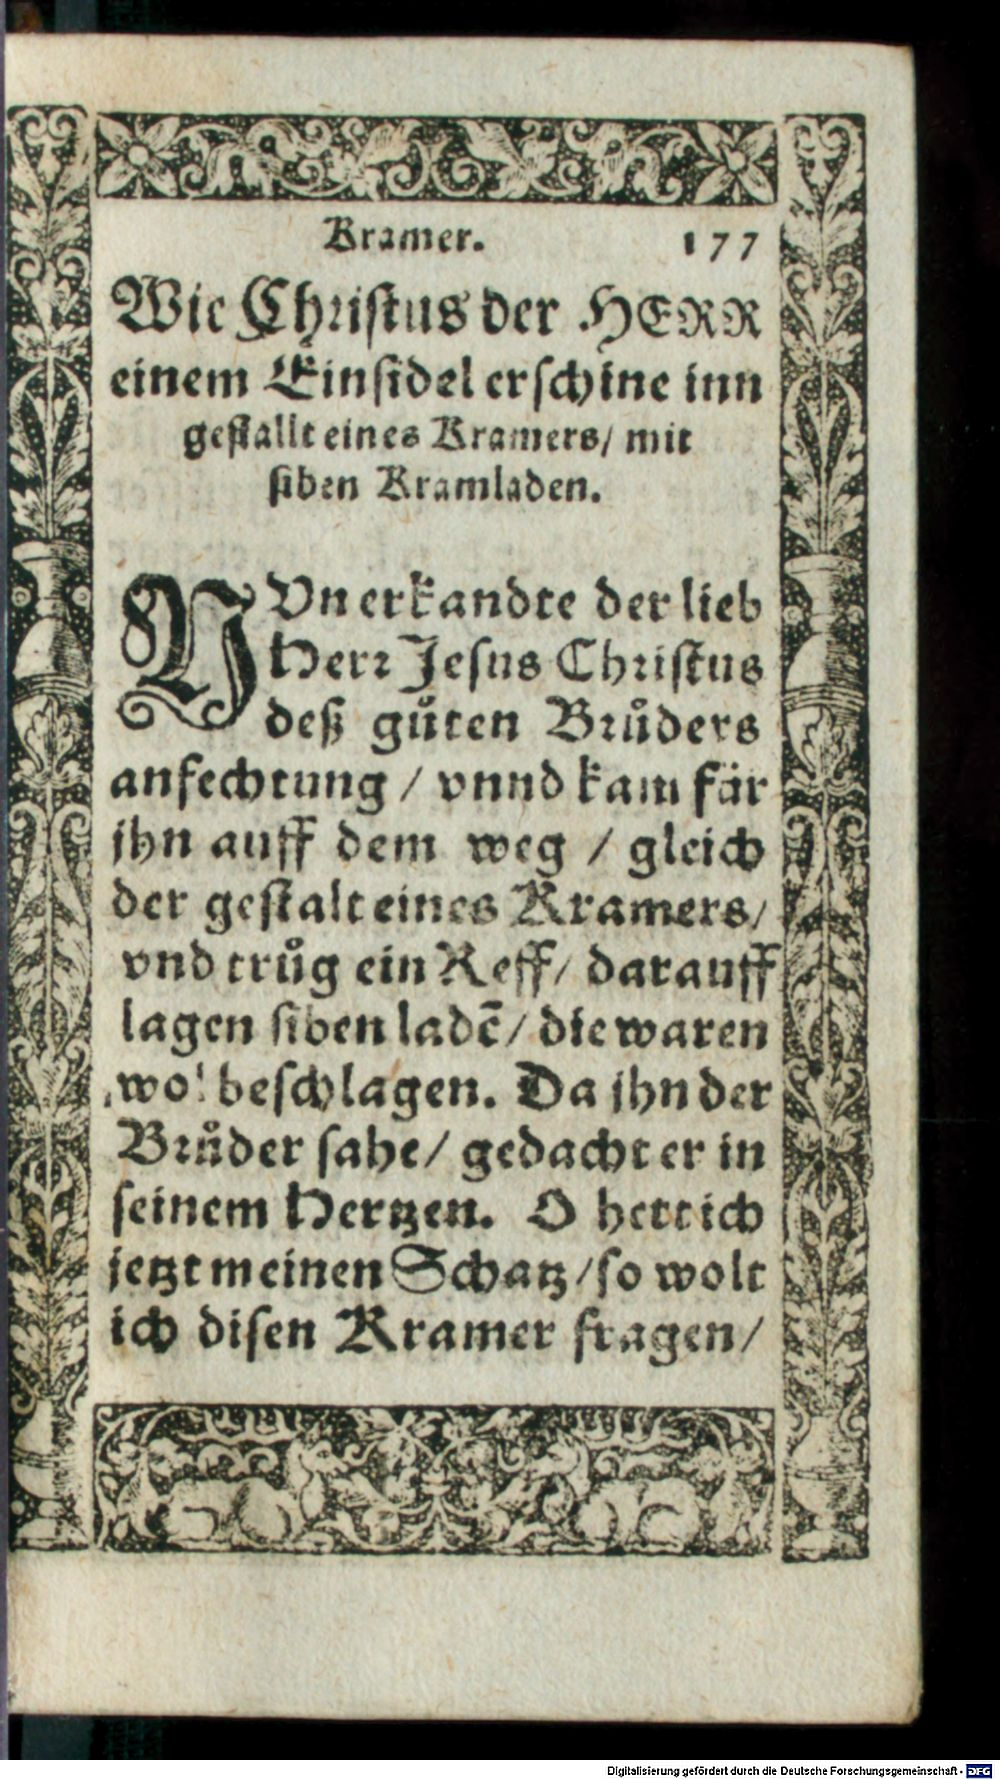 Kramer. 177
Wie Christus der HERR
einem Einsidel erschine inn
gestallt eines Kramers/ mit
siben Kramladen.
VVn erkandte der lieb
Herr Jesus Christus
deß gůten Brůders
anfechtung / vnnd kam für
jhn auff dem weg / gleich
der gestalt eines Kramers/
vnd trůg ein Reff/ darauff
lagen siben ladē/ die waren
wol beschlagen. Da jhn der
Brůder sahe/ gedacht er in
seinem Hertzen. O hett ich
jetzt meinen Schatz/so wolt
ich disen Kramer fragen/
Digitalisierung gefördert durch die Deutsche Forschungsgemeinschaft - DFG